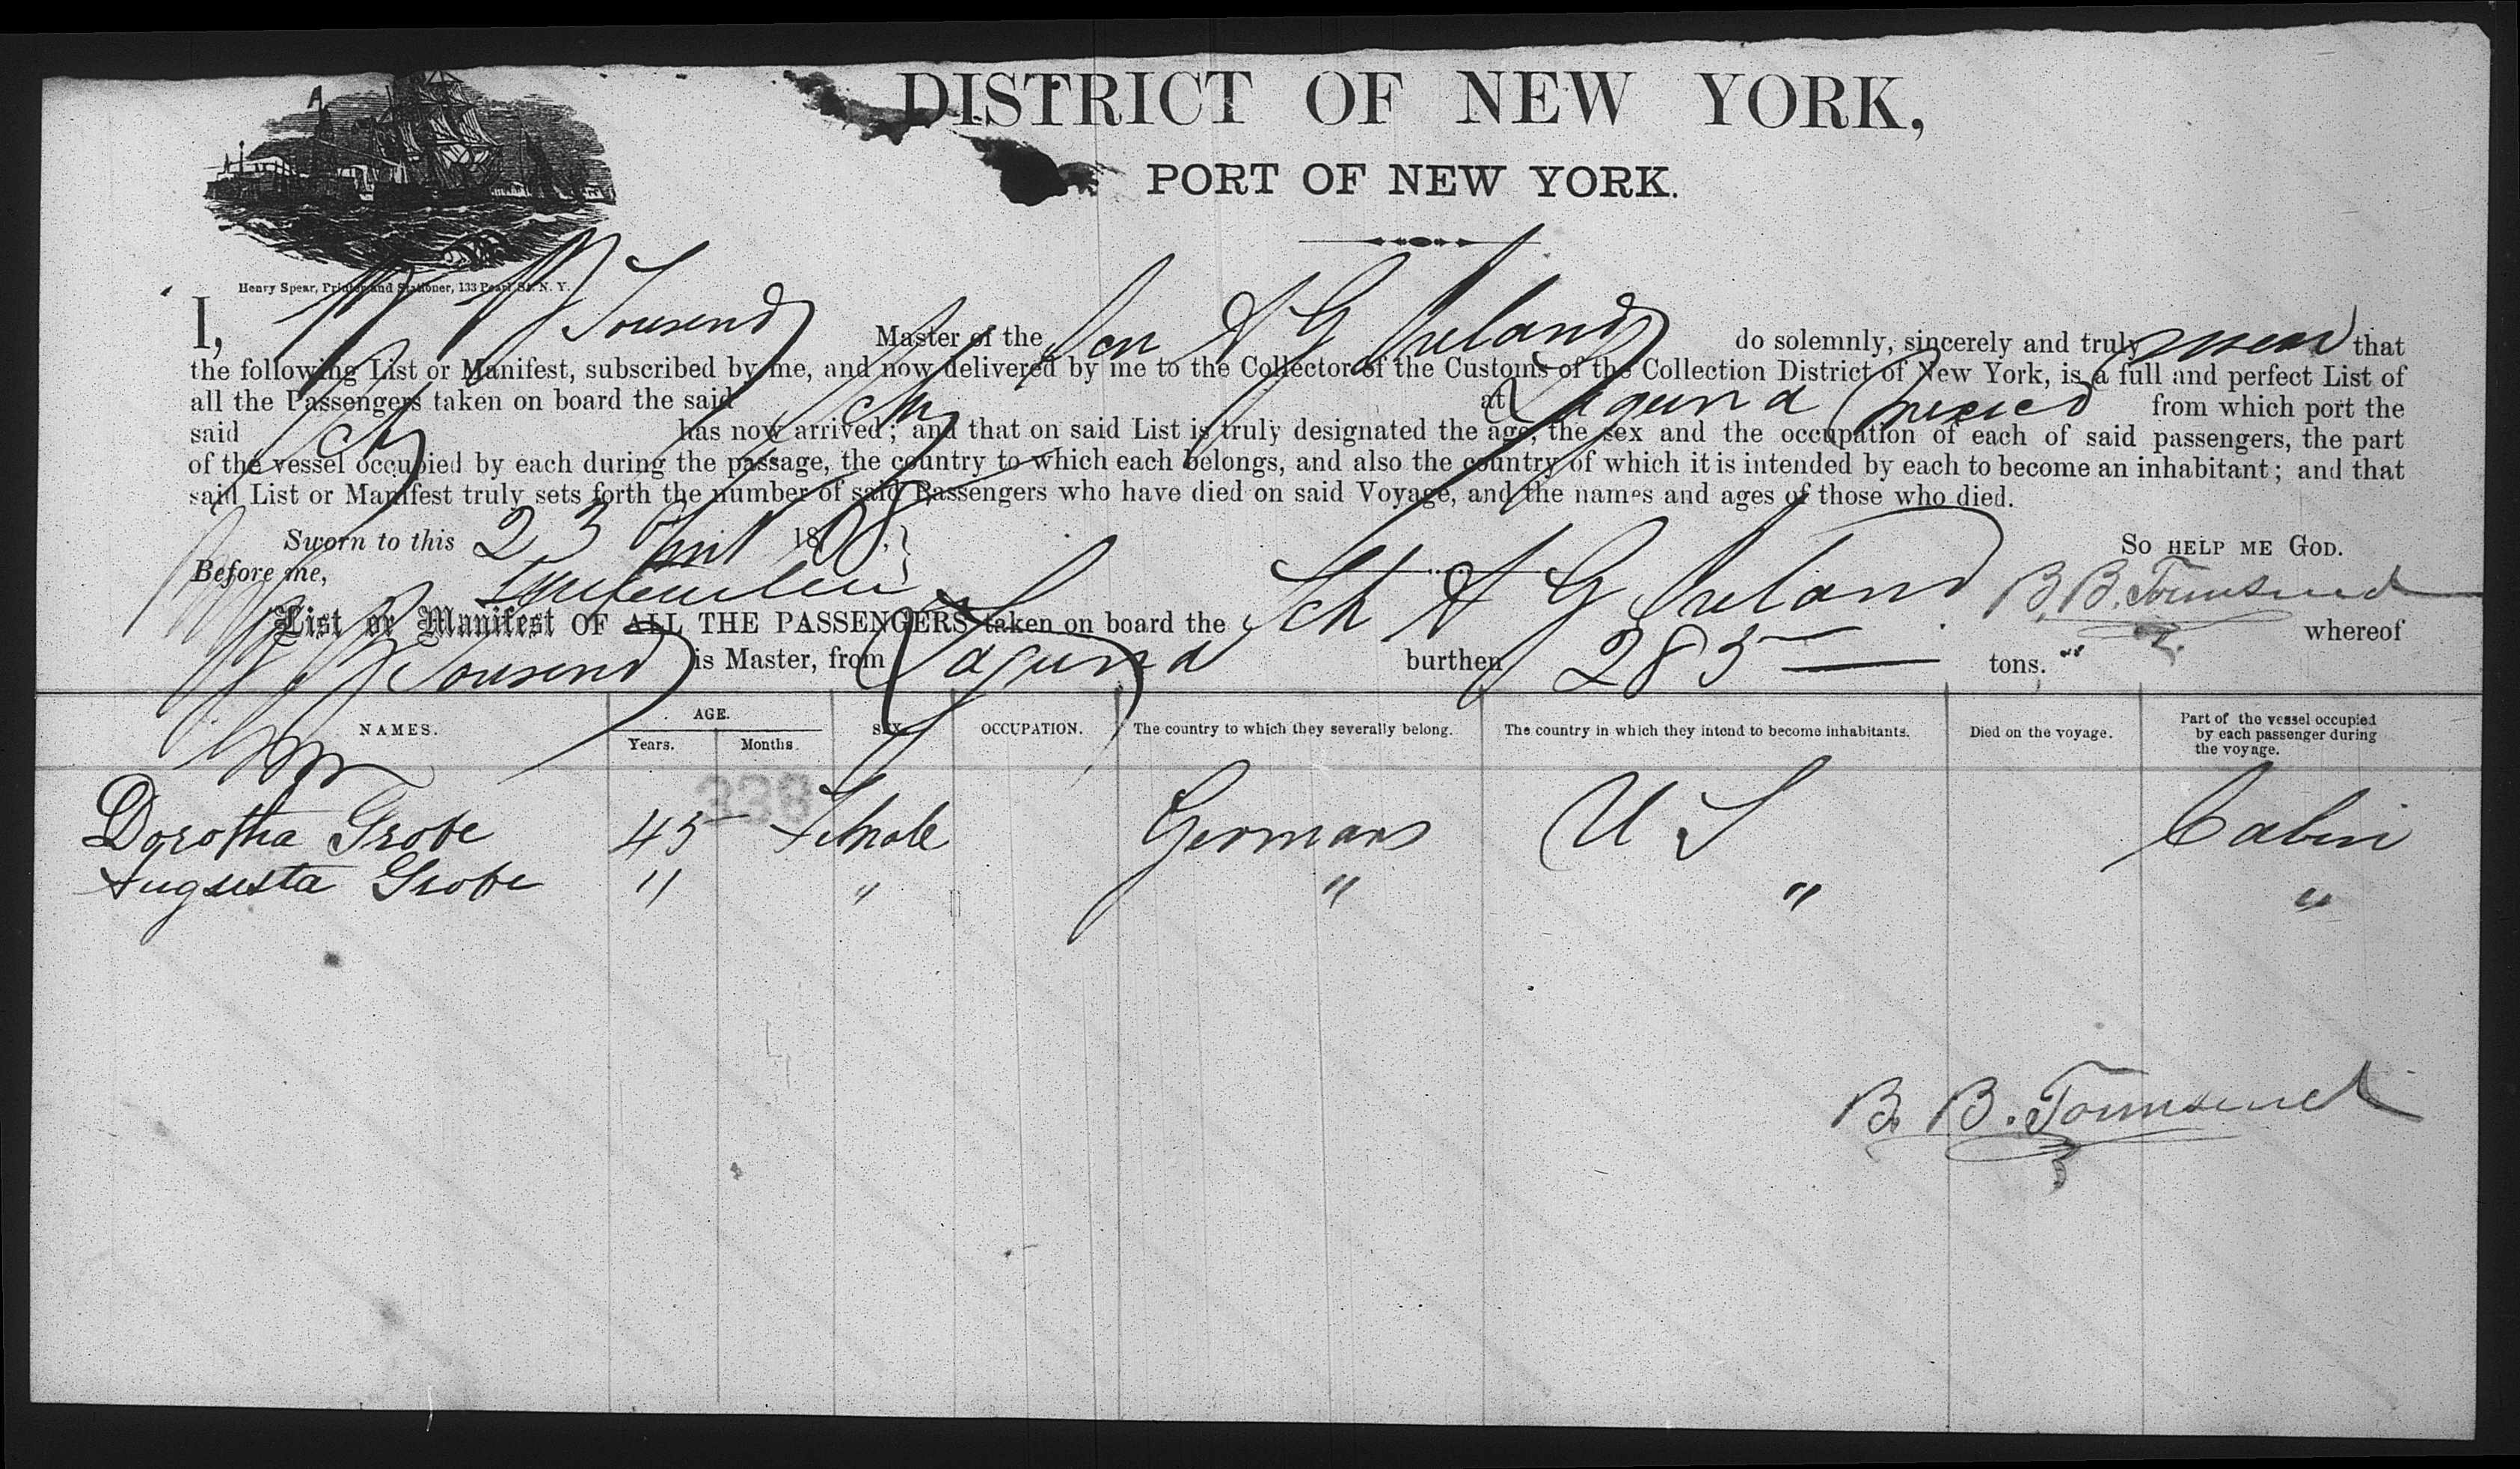 DISTRICT OF NEW YORK,
PORT OF NEW YORK.
Henry Spear, Printer and Stationer, 133 Pearl St. N. Y.
I, Tousend Master of the A G Ireland do solemnly, sincerely and truly swear that
the following List or Manifest, subscribed by me, and now delivered by me to the Collector of the Customs of the Collection District of New York, is a full and perfect List of
all the Passengers taken on board the said Sch at Laguna Mexico from which port the
said Sch has now arrived; and that on said List is truly designated the age, the sex and the occupation of each of said passengers, the part
of the vessel occupied by each during the passage, the country to which each belongs, and also the country of which it is intended by each to become an inhabitant; and that
said List or Manifest truly sets forth the number of said Passengers who have died on said Voyage, and the names and ages of those who died.
Sworn to this 23 April 1868, So help me God.
Before me, B. B. Townsend
List or Manifest OF ALL THE PASSENGERS taken on board the Sch A G Ireland whereof
Tousend is Master, from Laguna burthen 285 tons.
NAMES. AGE. Years. Months. SEX. OCCUPATION. The country to which they severally belong. The country in which they intend to become inhabitants. Died on the voyage. Part of the vessel occupied by each passenger during the voyage.
338
Dorotha Grobe 45 Female Germans U S Cabin
Augusta Grobe 11 " " " "
B. B. Townsend